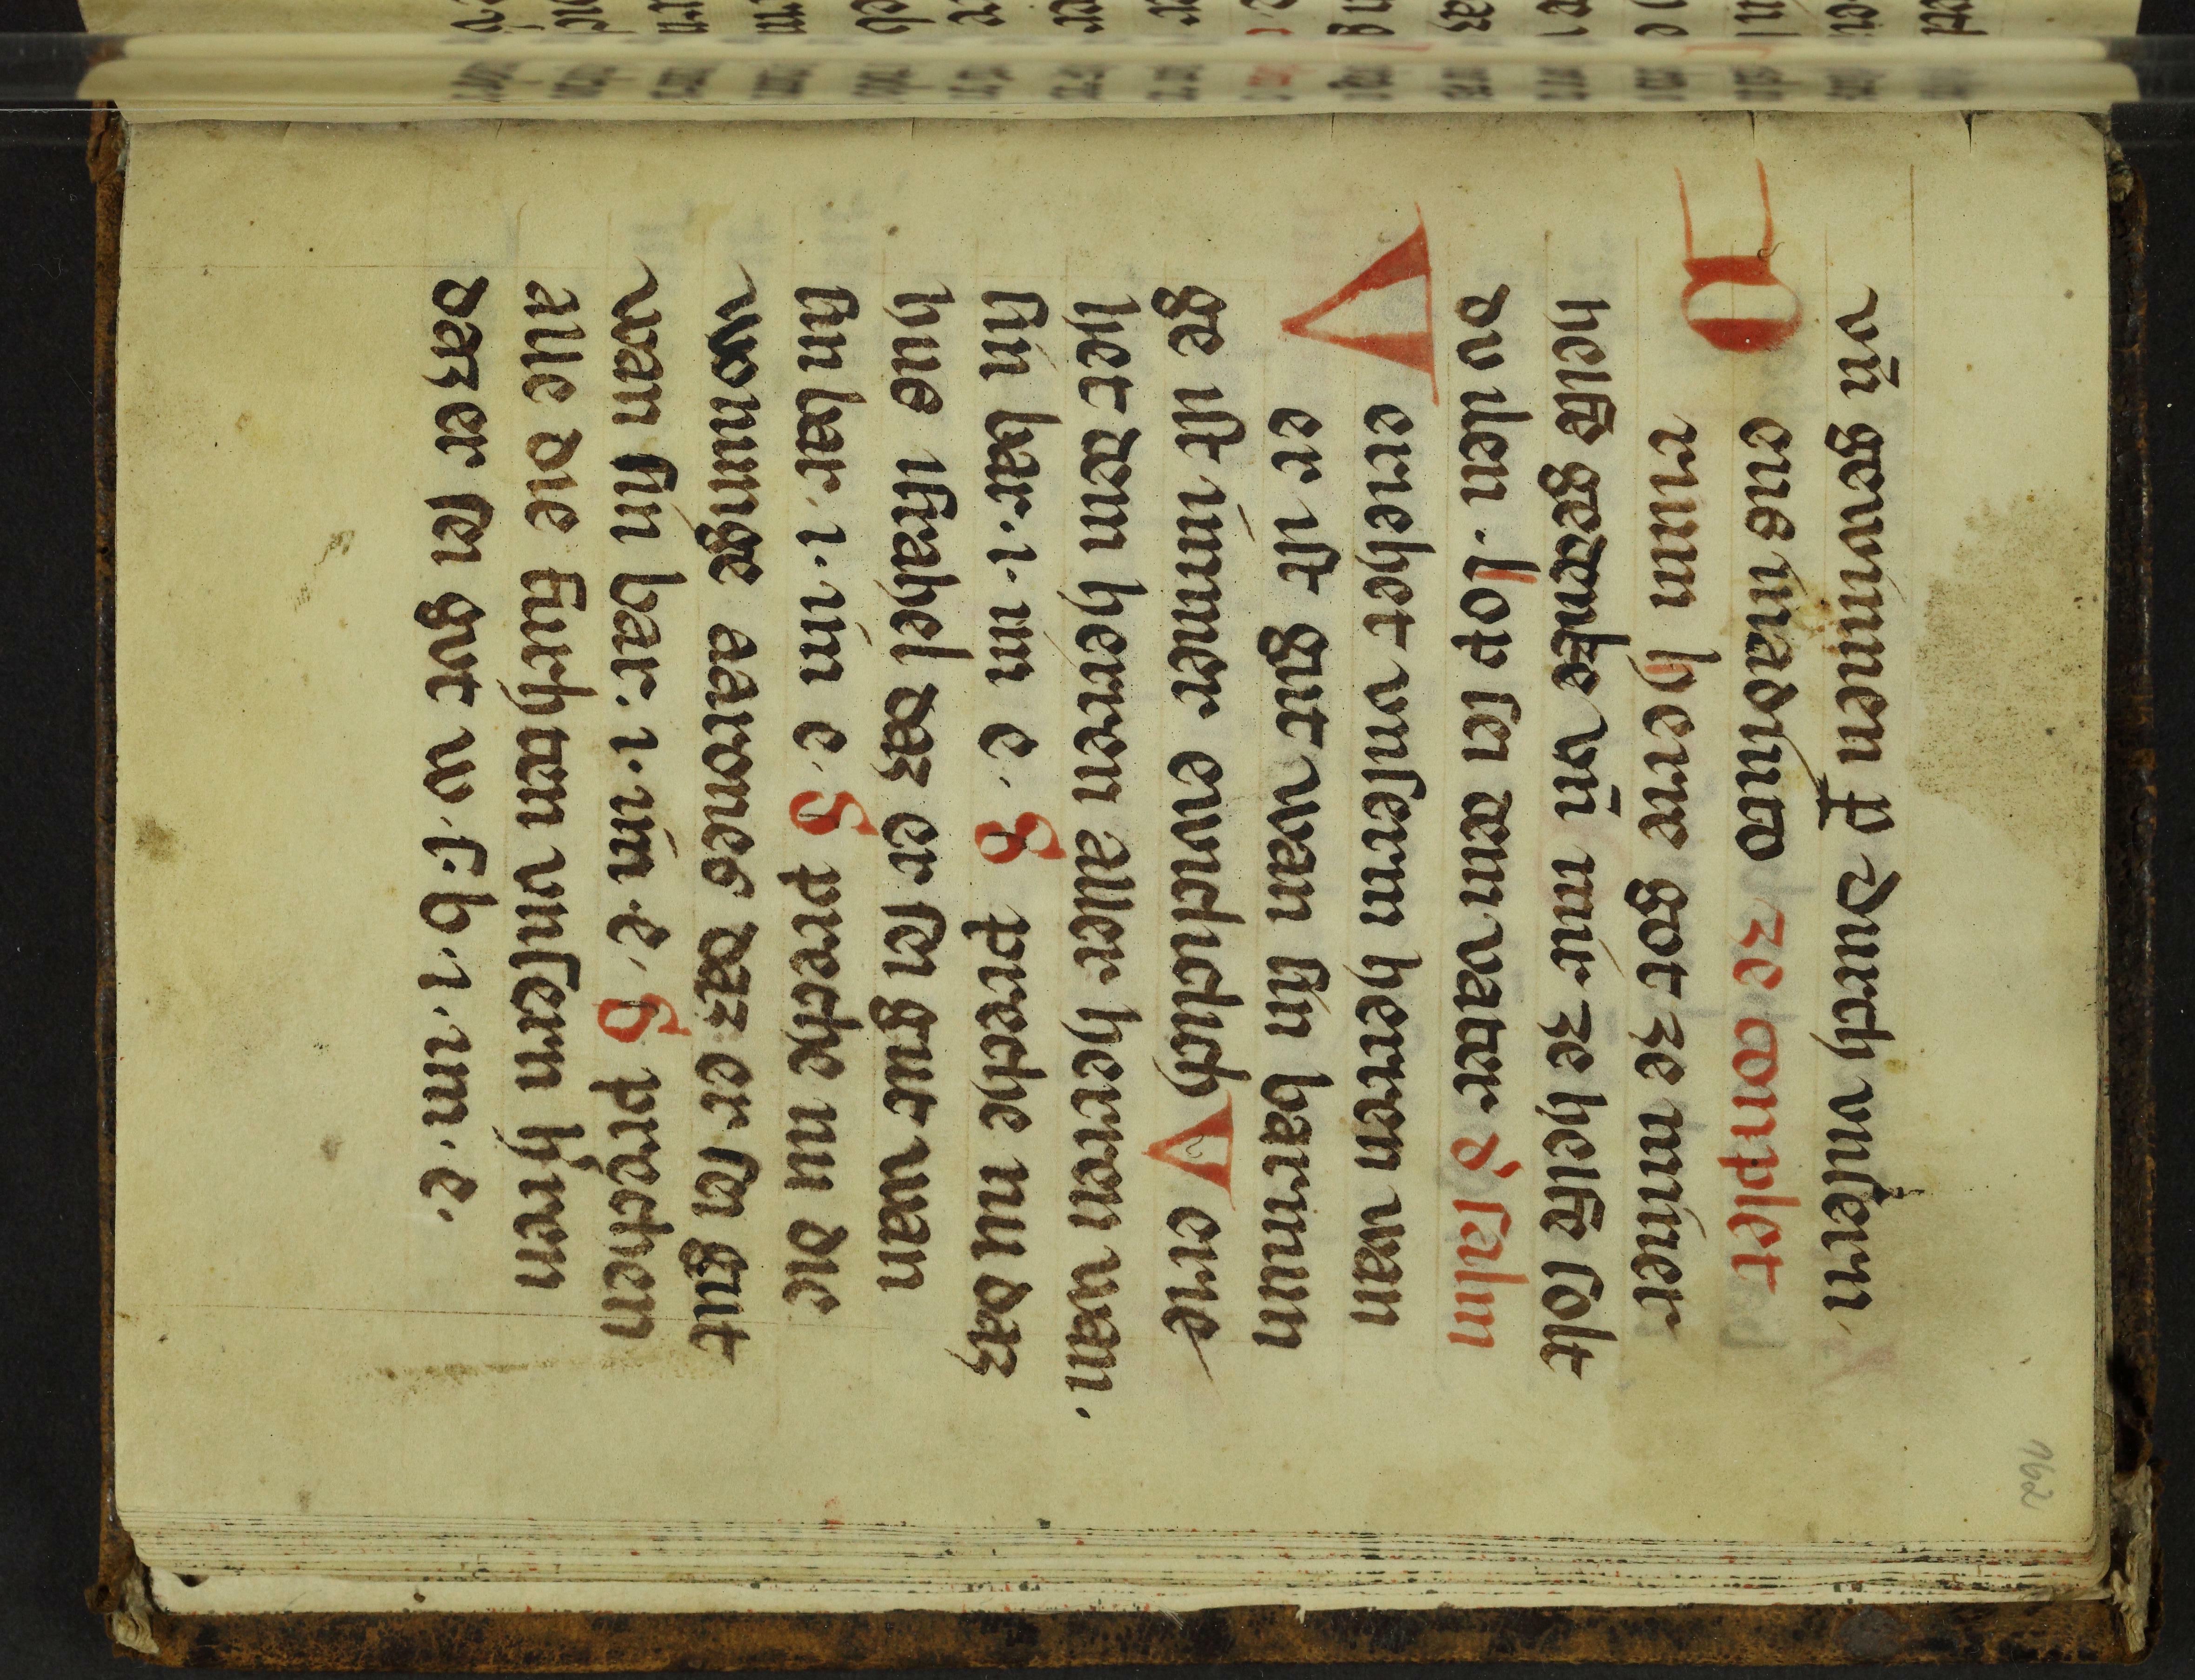 vn̄ gewinnen p̄ Durch vnsern
Deus in adiuto ze complet
nim herre got ze miner
helfe gedenke vn̄ mir ze helfe solt
dv ilen. Lop sei dem vater Psalm
Veriehet vnserm herren wan
er ist gut wan sin barmun
ge ist immer ewichlich Verie
het dem herren aller herren wan.
sin bar. i. im e. Spreche nu daz
hus israhel daz er sei gut wan
sin bar. i. im e. Spreche nu die
wonunge aarones daz er sei gut
wan sin bar: i. im. e. Sprechen
alle die furhten vnsern herren
daz er sei gvt w. s: b. i. im. e.
162